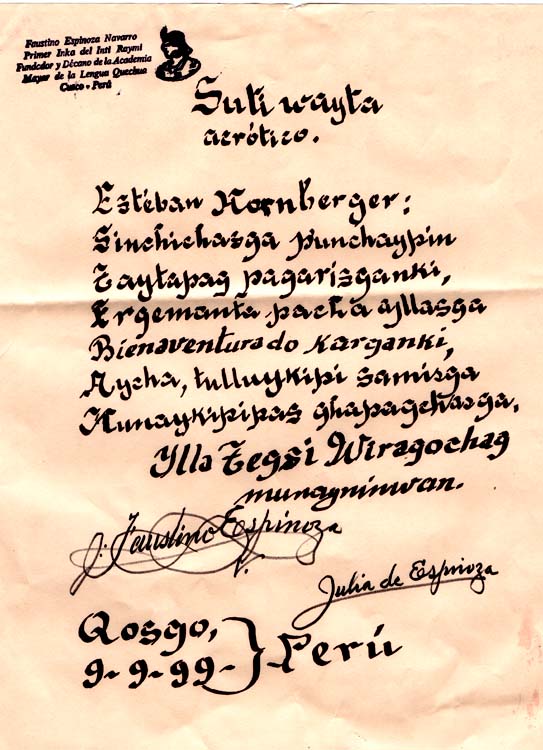 Faustino Espinoza Navarro
Primer Inka del Inti Raymi
Fundador y Décano de la Academia
Mayor de la Lengua Quechua
Cusco - Perú
Suti wayta
acrótico.
Estéban Hornberger:
Sinchichasqa punchaypin
Taytapaq paqarisqanki,
Erqemanta pacha ajllasqa
Bienaventurado karqanki,
Aycha, tulluykipi samisqa
Nunaykipipas qhapaqchasqa,
Ylla Teqsi Wiraqochaq
munayninwan.
J. Faustino Espinoza
Julia de Espinoza
Qosqo,
9-9-99- } Perú